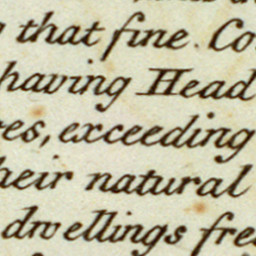 that fine. Co
having Head
res, exceeding
heir natural
dwellings fre